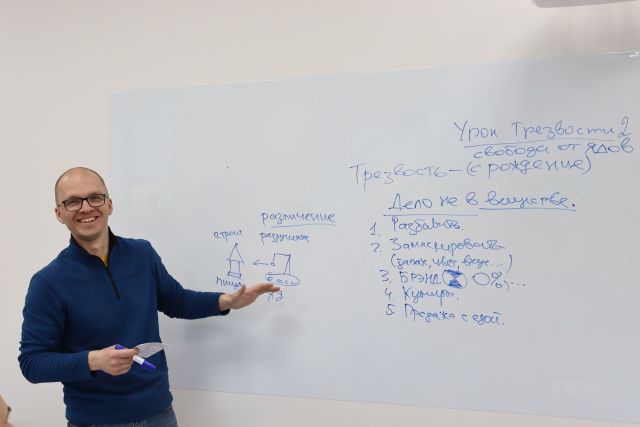 Урок Трезвости 2
свобода от ядов
Трезвость – (с рождение)
Дело не в веществе.
1. Разбавить.
2. Замаскировать
(запах, цвет, вкус...)
3. БРЭНД 0%,...
4. Кумиры.
5 Продажа с едой.
различение
строит разрушает
пища яд